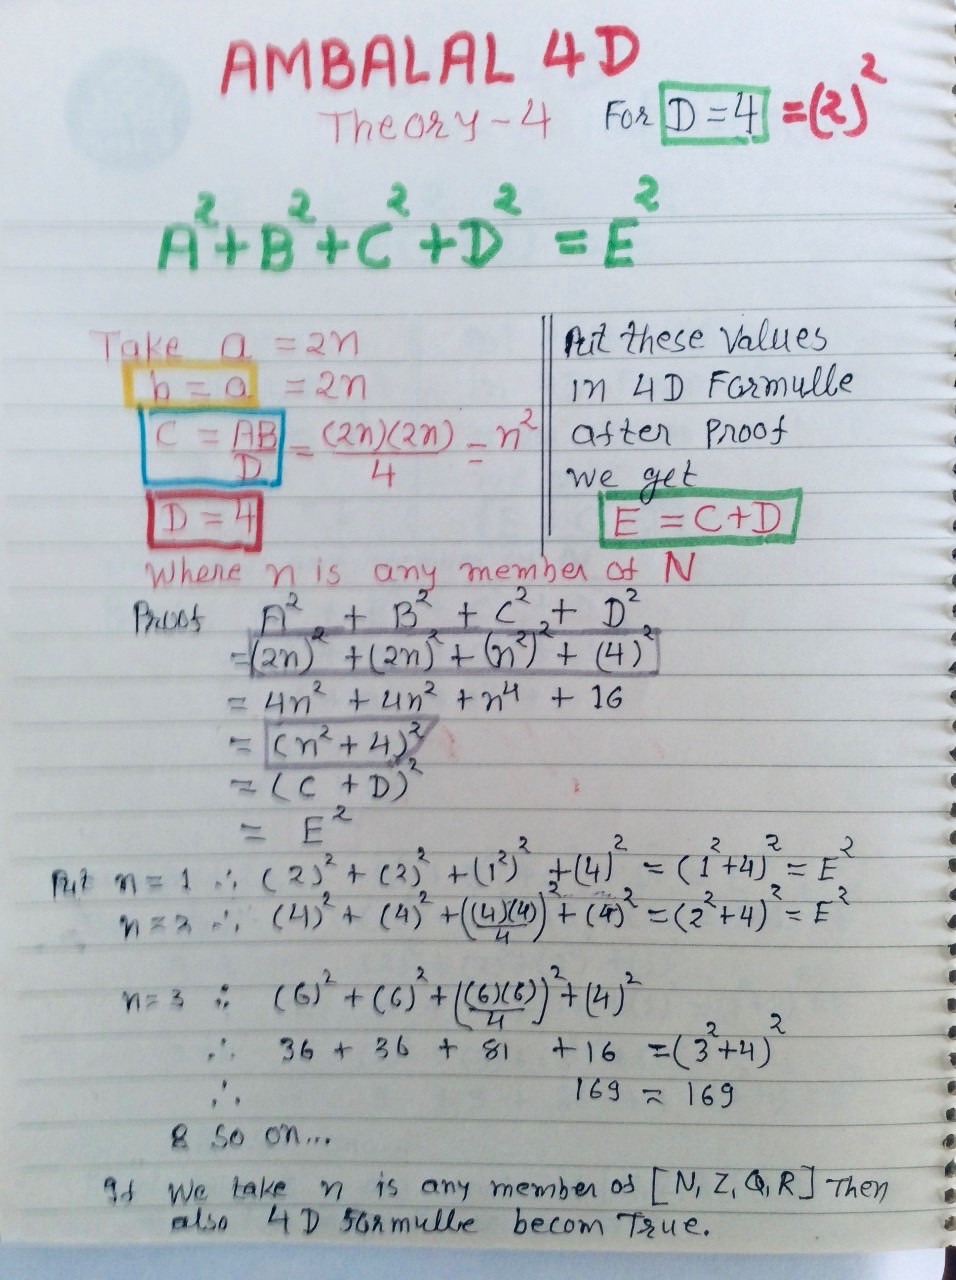 AMBALAL 4D
Theory-4 For D=4 =(2)²
A²+B²+C²+D² = E²
Take a = 2n
b = a = 2n
C = AB/D = (2n)(2n)/4 = n²
D = 4
Put these Values
in 4D Formulle
after Proof
we get
E = C+D
Where n is any member of N
Proof A² + B² + C² + D²
=(2n)² +(2n)² + (n²)² + (4)²
= 4n² + 4n² + n⁴ + 16
= (n²+4)²
= (C + D)²
= E²
Put n=1 ∴ (2)² + (2)² +(1²)² +(4)² = (1²+4)² = E²
n=2 ∴ (4)² + (4)² +((4)(4)/4)² + (4)² =(2²+4)² = E²
n=3 ∴ (6)² + (6)² + ((6)(6)/4)² + (4)²
∴ 36 + 36 + 81 + 16 =(3²+4)²
∴ 169 = 169
& so on...
If We take n is any member of [N, Z, Q, R] Then
also 4D formulle becom True.